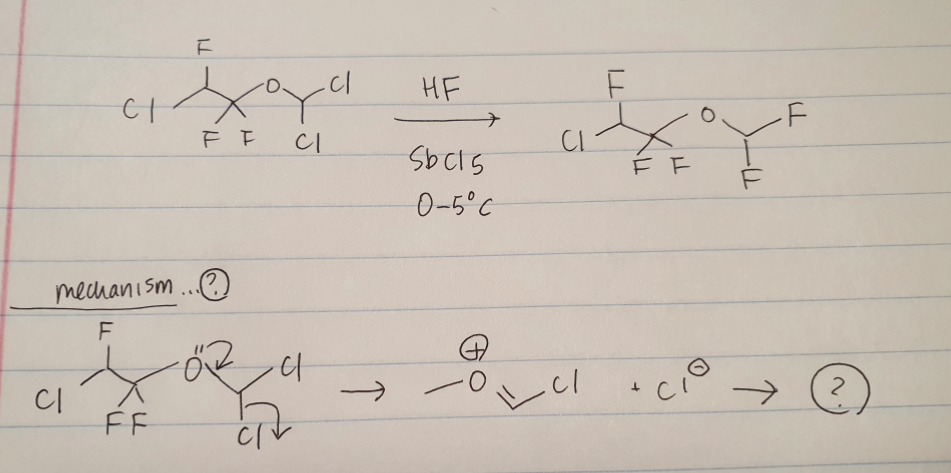 F
O Cl
Cl
F F Cl
HF
SbCl5
0-5°C
F
O F
Cl
F F
F
mechanism...?
F
Ö Cl
Cl
FF
Cl
+
O Cl + Cl⊖ ?